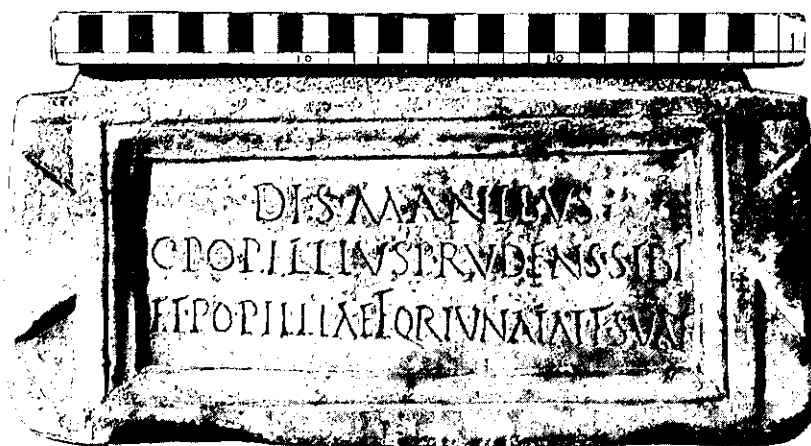 10
DIS·MANIBVS
C·POPILLIVS PRVDENS SIBI
ET·POPILLIAE FORTVNATAE·SVAE